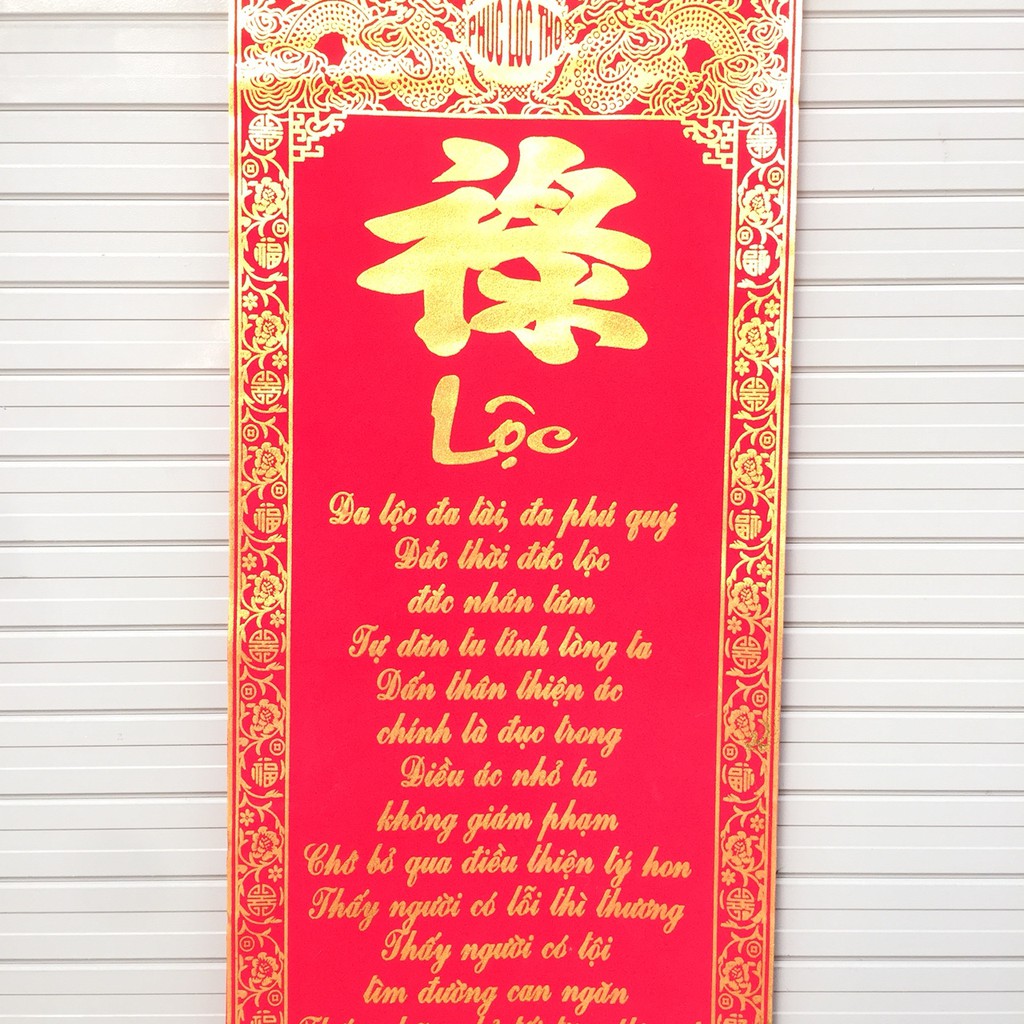 PHÚC LỘC THỌ
祿
Lộc
Đa lộc đa tài, đa phú quý
Đắc thời đắc lộc
đắc nhân tâm
Tự dăn tu tỉnh lòng ta
Dấn thân thiện ác
chính là đục trong
Điều ác nhỏ ta
không giám phạm
Chớ bỏ qua điều thiện tý hon
Thấy người có lỗi thì thương
Thấy người có tội
tìm đường can ngăn